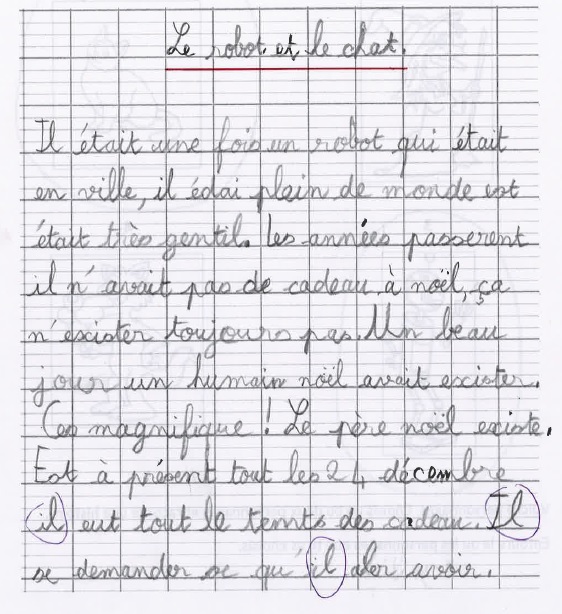 Le robot et le chat.
Il était une fois un robot qui était
en ville, il édai plein de monde est
était très gentil. Les années passerent
il n'avait pas de cadeau à noël, ça
n'exister toujours pas. Un beau
jour un humain noël avait exister.
Ces magnifique ! Le père noël existe.
Est à présent tout les 24 décembre
il eut tout le temts des cadeau. Il
se demander se qu'il aler avoir.